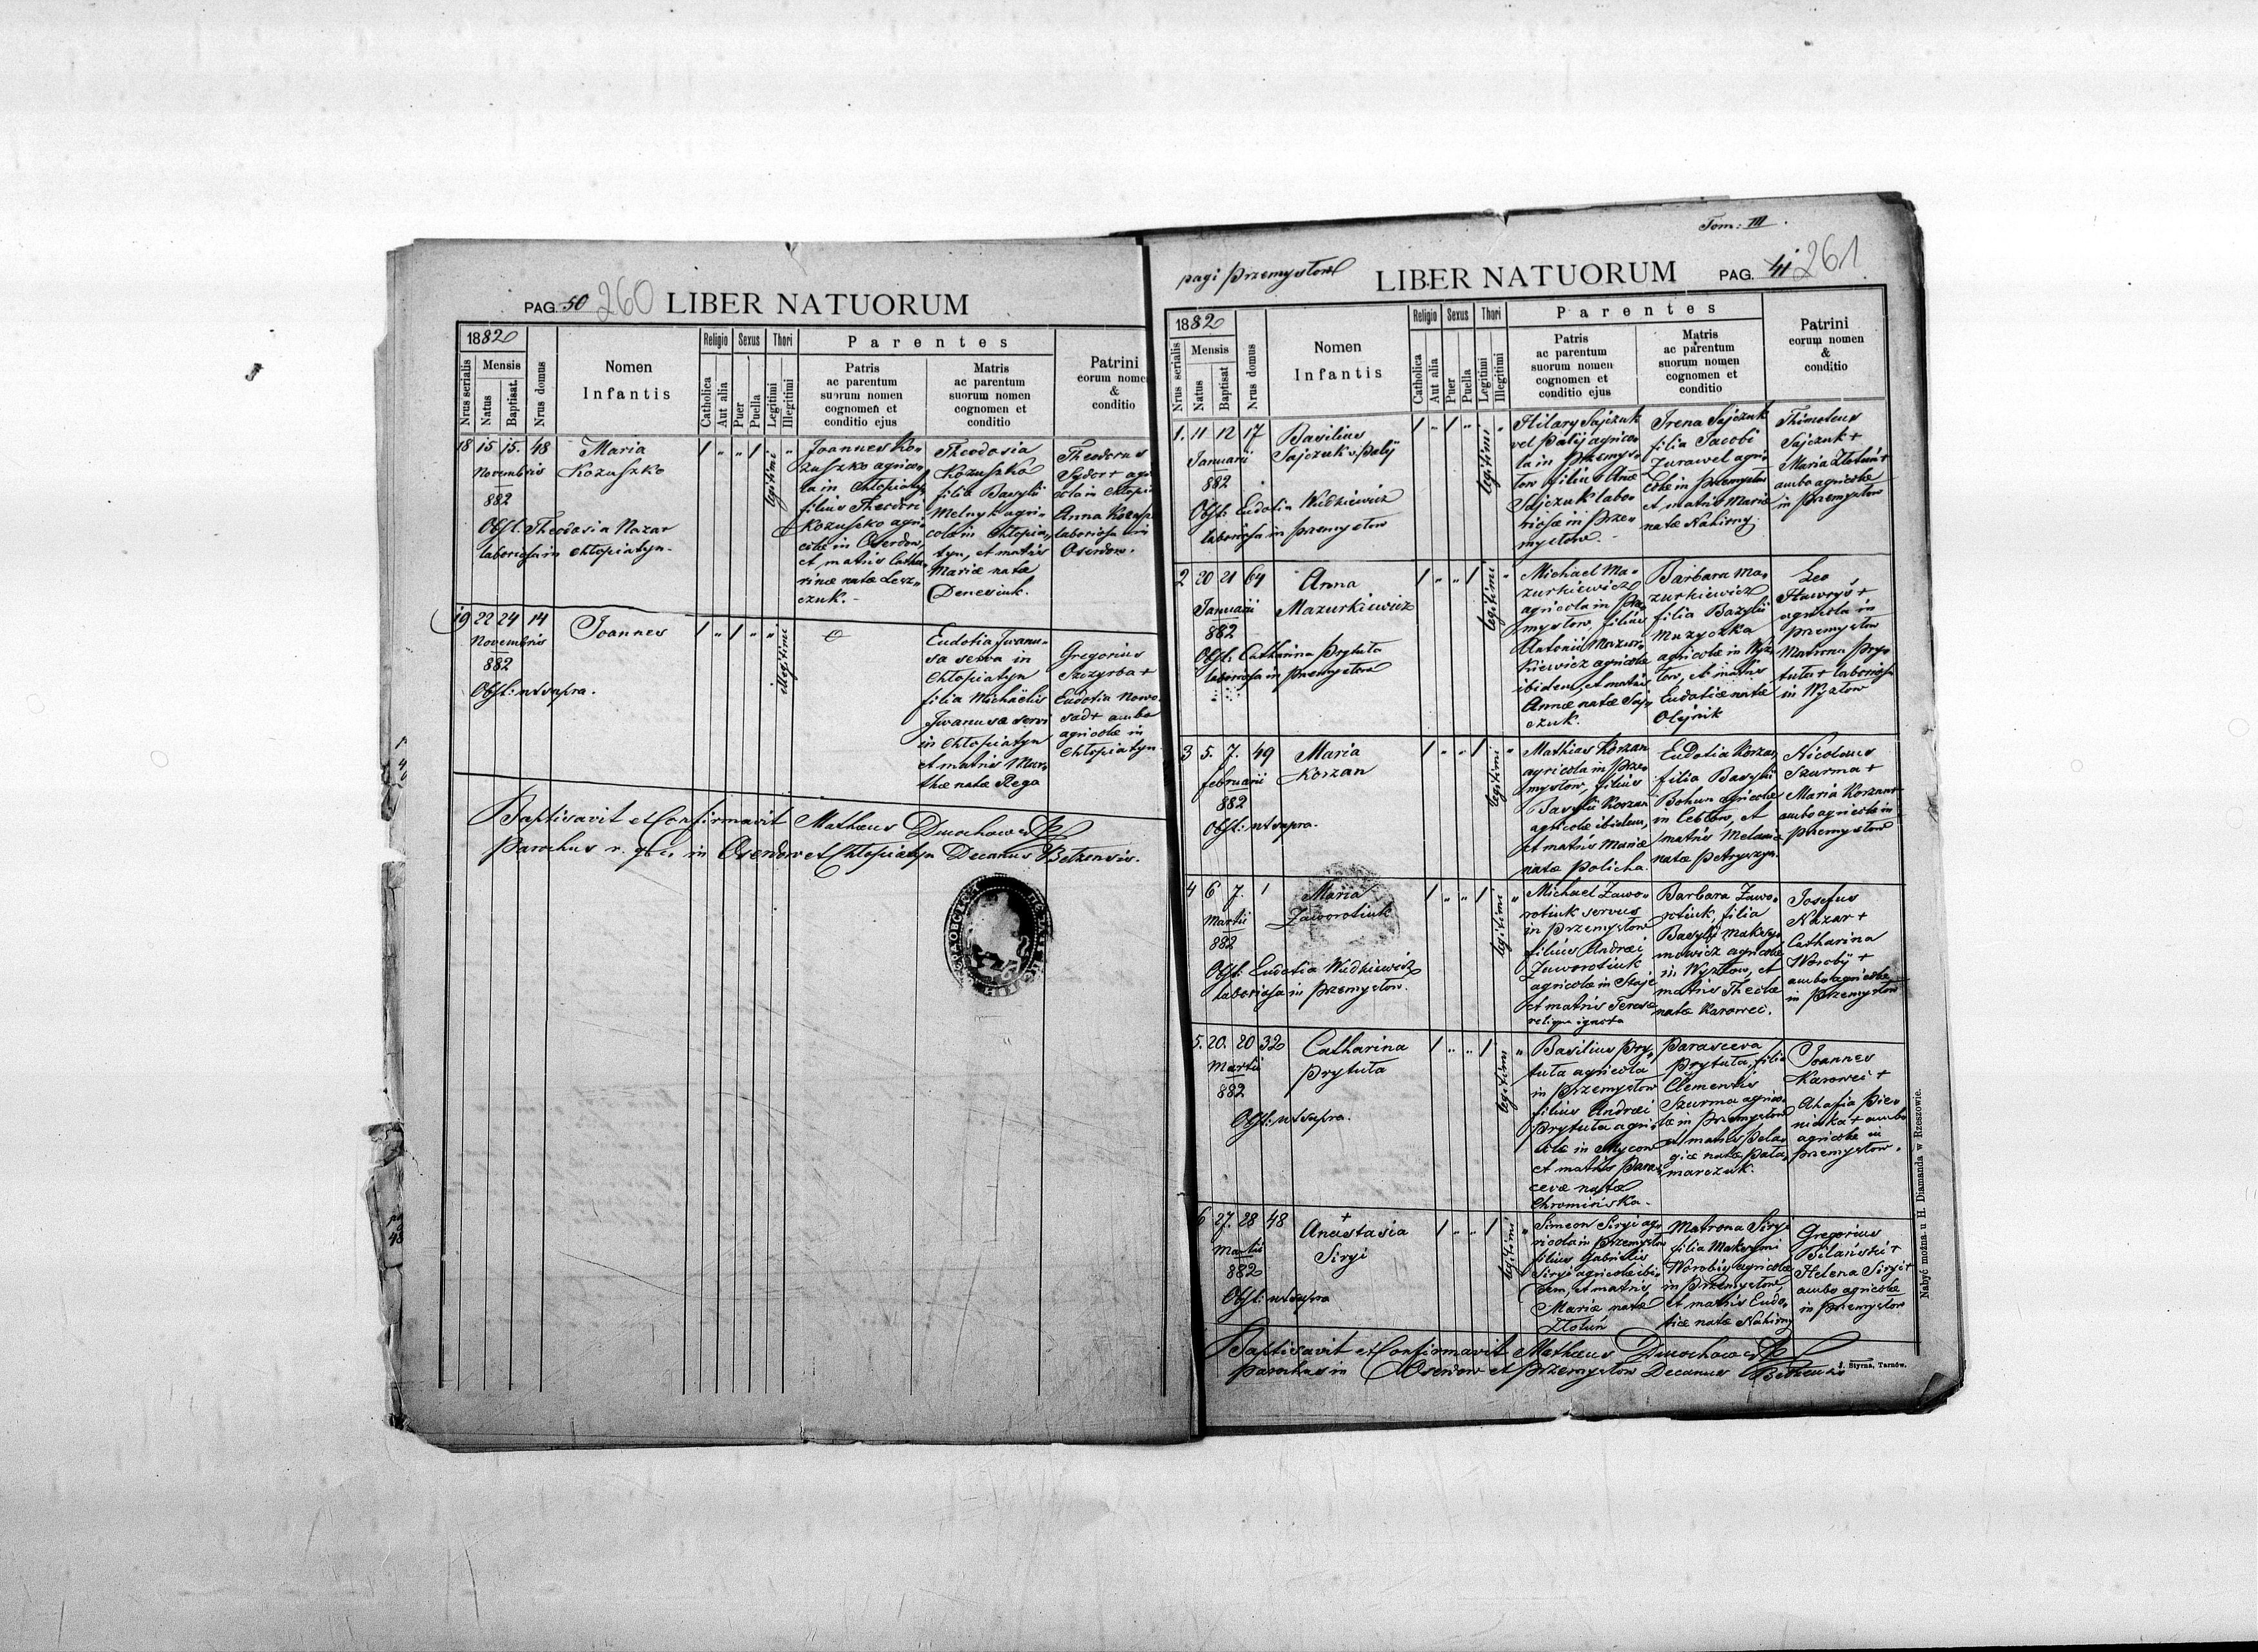 PAG. 50 260 LIBER NATUORUM
1882
Nrus serialis
Mensis
Natus
Baptisat.
Nrus domus
Nomen
Infantis
Religio
Catholica
Aut alia
Sexus
Puer
Puella
Thori
Legitimi
Illegitimi
Parentes
Patris
ac parentum
suorum nomen
cognomen et
conditio ejus
Matris
ac parentum
suorum nomen
cognomen et
conditio
Patrini
eorum nomen
&
conditio
18 15 15. 48
Novembris
882
Maria
Kozuszko
Obst: Theodosia Nazar
laboriosa in Chłopiatyn.
legitimi
Joannes Ko-
zuszko agrico-
la in Chłopiatyn
filius Theodori
Kozuszko agri-
colæ in Oserdow,
et matris Catha-
rinæ natæ Lesz-
czuk.
Theodosia
Kozuszko
filia Basylii
Melnyk agri-
colæ in Chłopia-
tyn, et matris
Mariæ natæ
Denesiuk.
Theodorus
Sydor + agri
cola in Chłopia
Anna Kozusz
laboriosa in
Oserdow.
19 22 24 14
Novembris
882
Joannes
Obst: ut supra.
illegitimi
Eudotia Iwanu-
sa serva in
Chłopiatyn
filia Michaëlis
Iwanusæ servi
in Chłopiatyn
et matris Mar-
thæ natæ Rega
Gregorius
Szczyrba +
Eudotia Nowo
sad + ambo
agricolæ in
Chłopiatyn.
Baptisavit et Confirmavit Mathæus
Parochus r. gr. c. in Oserdow et Chłopiatyn Decanus Bełzensis.
Tom: III.
pagi Przemysłow LIBER NATUORUM PAG. 41 261
1882
Nrus serialis
Mensis
Natus
Baptisat
Nrus domus
Nomen
Infantis
Religio
Catholica
Aut alia
Sexus
Puer
Puella
Thori
Legitimi
Illegitimi
Parentes
Patris
ac parentum
suorum nomen
cognomen et
conditio ejus
Matris
ac parentum
suorum nomen
cognomen et
conditio
Patrini
eorum nomen
&
conditio
1. 11 12 17
Januarii
882
Basilius
Sajczuk v. Palij
Obst: Eudotia Widkiewicz
laboriosa in Przemysłow
legitimi
Hilary Sajczuk
vel Palij agrico-
la in Przemys-
łow filius Annæ
Sajczuk labo-
riosæ in Prze-
mysłow.
Irena Sajczuk
filia Jacobi
Zurawel agri-
colæ in Przemysłow
et matris Mariæ
natæ Nahirny.
Thimoteus
Sajczuk +
Maria Złotuń +
ambo agricolæ
in Przemysłow
2 20 21 64
Januarii
882
Anna
Mazurkiewicz
Obst: Catharina Prytuła
laboriosa in Przemysłow
legitimi
Michael Ma-
zurkiewicz
agricola in Prze-
mysłow, filius
Antonii Mazur-
kiewicz agricolæ
ibidem, et matris
Annæ natæ Saj-
czuk.
Barbara Ma-
zurkiewicz
filia Bazylii
Muzyczka
agricolæ in Wyz-
łow, et matris
Eudotiæ natæ
Olejnik
Leo
Hawryś +
agricola in
Przemysłow
Matrona Pry-
tuła + laboriosa
in Wyzłow
3 5. 7. 49
februarii
882
Maria
Korzan
Obst: ut supra.
legitimi
Mathias Korzan
agricola in Prze-
mysłow, filius
Basylii Korzan
agricolæ ibidem,
et matris Mariæ
natæ Policha.
Eudotia Korzan,
filia Basylii
Bohun agricolæ
in Cebłow, et
matris Melaniæ
natæ Petryszyn.
Nicolaus
Szurma +
Maria Korzan +
ambo agricolæ in
Przemysłow
4 6 7. 1
Martii
882
Maria
Zaworotiuk
Obst: Eudotia Widkiewicz
laboriosa in Przemysłow.
legitimi
Michael Zawo-
rotiuk servus
in Przemysłow
filius Andreæ
Zaworotiuk
agricolæ in Staje
et matris Teresæ
reliqua ignota
Barbara Zawo-
rotiuk, filia
Basylii Maksy-
mowicz agricolæ
in Wyzłow, et
matris Theclæ
natæ Karowci.
Josefus
Nazar +
Catharina
Worobij +
ambo agricolæ
in Przemysłow
5. 20. 20 32
Martii
882
Catharina
Prytuła
Obst: ut supra.
legitimi
Basilius Pry-
tuła agricola
in Przemysłow
filius Andreæ
Prytuła agri-
colæ in Mycow
et matris Paras-
cevæ natæ
Chromińska.
Parasceva
Prytuła, filia
Clementis
Szurma agrico-
læ in Przemysłow
et matris Pela-
giæ natæ Pała-
marczuk.
Joannes
Karowci +
Ahafia Pie-
nińka + ambo
agricolæ in
Przemysłow.
6 27. 28 48
Martii
882
+
Anastasia
Siryi
Obst: ut supra
legitimi
Simeon Siryi ag-
ricola in Przemysłow
filius Gabrielis
Siryi agricolæ ibi-
dem, et matris
Mariæ natæ
Złotuń
Matrona Siryi
filia Maksymi
Worobij agricolæ
in Przemysłow,
et matris Eudo-
tiæ natæ Nahirny
Gregorius
Bilański +
Helena Siryi +
ambo agricolæ
in Przemysłow
Baptisavit et Confirmavit Mathæus
Parochus in Oserdow et Przemysłow Decanus Bełzensis
J. Styrna, Tarnów.
Nabyć można u H. Diamanda w Rzeszowie.